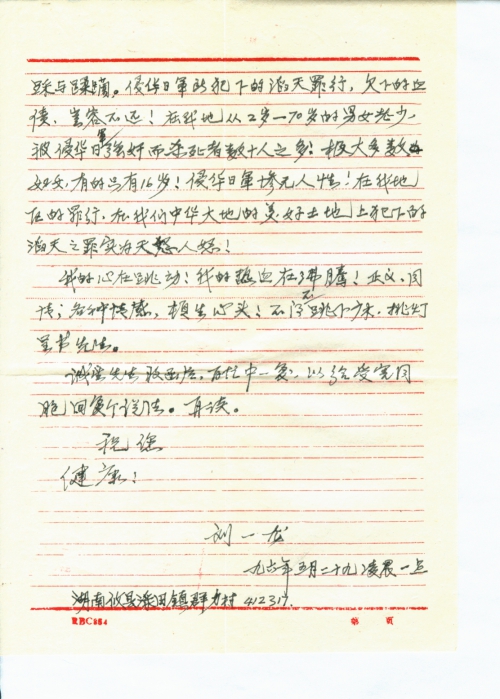 踩与蹂躏。侵华日军所犯下的滔天罪行，欠下的血
债，岂容不还！在我地从2岁—70岁的男女老少，
被侵华日军强奸而杀死者数十人之多！极大多数
妇女，有的只有16岁！侵华日军惨无人性！在我地
区的罪行，在我们中华大地的美好土地上犯下的
滔天之罪实为天怒人怒！
我的心在跳动！我的热血在沸腾！正义、同
情；各种情感，顿生心头！不得不跳下床，挑灯
呈书先生。
诚望先生 百忙中一复，以给受害同
胞回复个说法。再谈。
祝您
健康！
刘一龙
九六年五月二十九凌晨一点
湖南攸县漆田镇群力村 412317.
RBC854
第 页